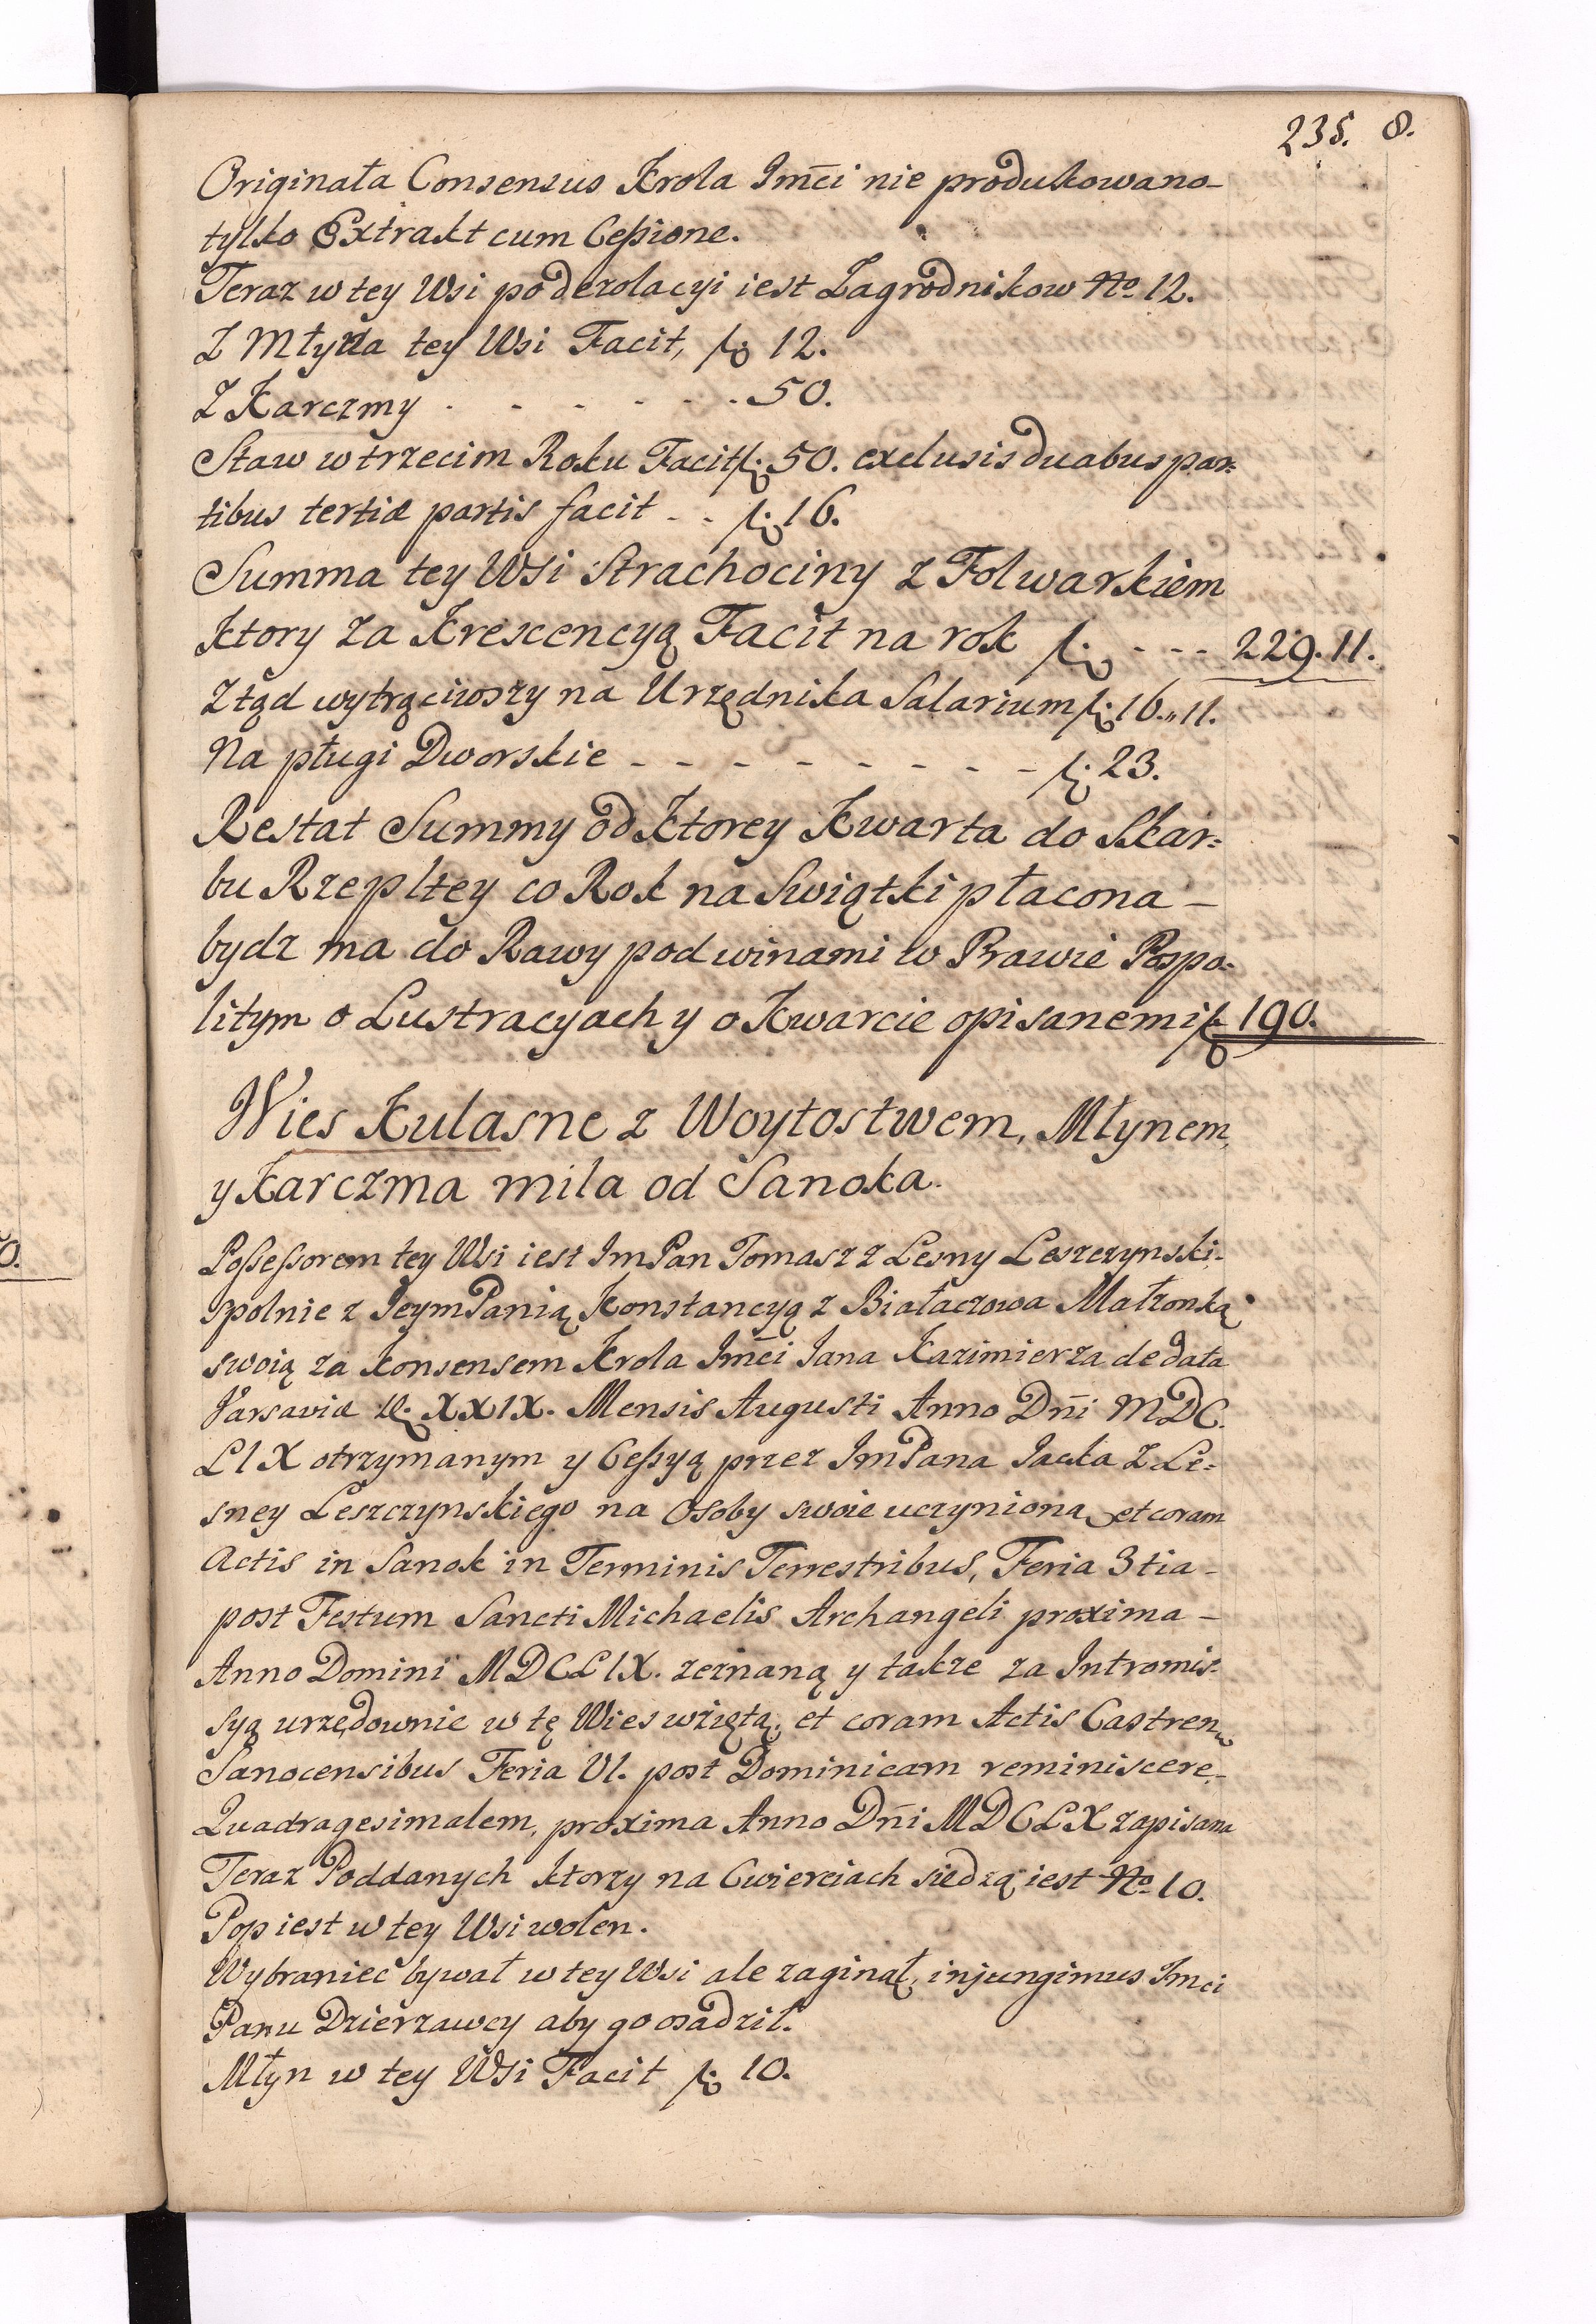 235. 8.
Originała Consensus Krola Jm̃ci nie produkowano_
tylko Extrakt cum Ceßione.
Teraz w tey Wsi po dezolacyi iest Zagrodnikow No 12.
Z Młyna tey Wsi Facit, f: 12.
Z Karczmy . - - - - - . 50.
Staw w trzecim Roku Facit f: 50. exclusis duabus par=
tibus tertiæ partis facit - - f: 16.
Summa tey Wsi Strachociny z Folwarkiem
ktory za Krescencyą Facit na rok f: - - - 229. 11.
Ztąd wytrąciwszy na Urzędnika Salarium f: 16. „ 11.
Na pługi Dworskie - - - - - - - - - f: 23.
Restat Summy od Ktorey Kwarta do Skar=
bu Rzepltey co Rok na Swiątki płacona _
bydz ma do Rawy pod winami w Prawie Pospo=
litym o Lustracyach y o Kwarcie opisanemi f: 190.
Wies Kulasne z Woytostwem, Młynem,
y Karczma mila od Sanoka.
Poßeßorem tey Wsi iest Jm Pan Tomasz z Lesny Leszczynski.
Spolnie z Jeym Panią Konstancyą z Białaczowa Małzonką
swoią za konsensem Krola Jm̃ci Jana Kazimierza de data
Varsaviæ D. XXIX. Mensis Augusti Anno Dñi MDC.
LIX otrzymanym y Ceßyą przez Jm Pana Jacka Z Le=
sney Leszczynskiego na Osoby swoie uczyniona, et coram
Actis in Sanok in Terminis Terrestribus, Feria 3tia _
post Festum Sancti Michaelis Archangeli proxima _
Anno Domini MDCLIX. zeznaną y takze za Intromis=
syą urzędownie w tę Wies wziętą, et coram Actis Castren„
Sanocensibus Feria VI. post Dominicam reminiscere_
Quadragesimalem, proxima Anno Dñi MDCLX zapisana
Teraz Poddanych ktorzy na Cwierciach siedzą iest No 10.
Pop iest w tey Wsi wolen.
Wybraniec bywał w tey Wsi ale zaginął, injungimus Jmci
Panu Dzierzawcy aby go osadził.
Młyn w tey Wsi Facit f: 10.